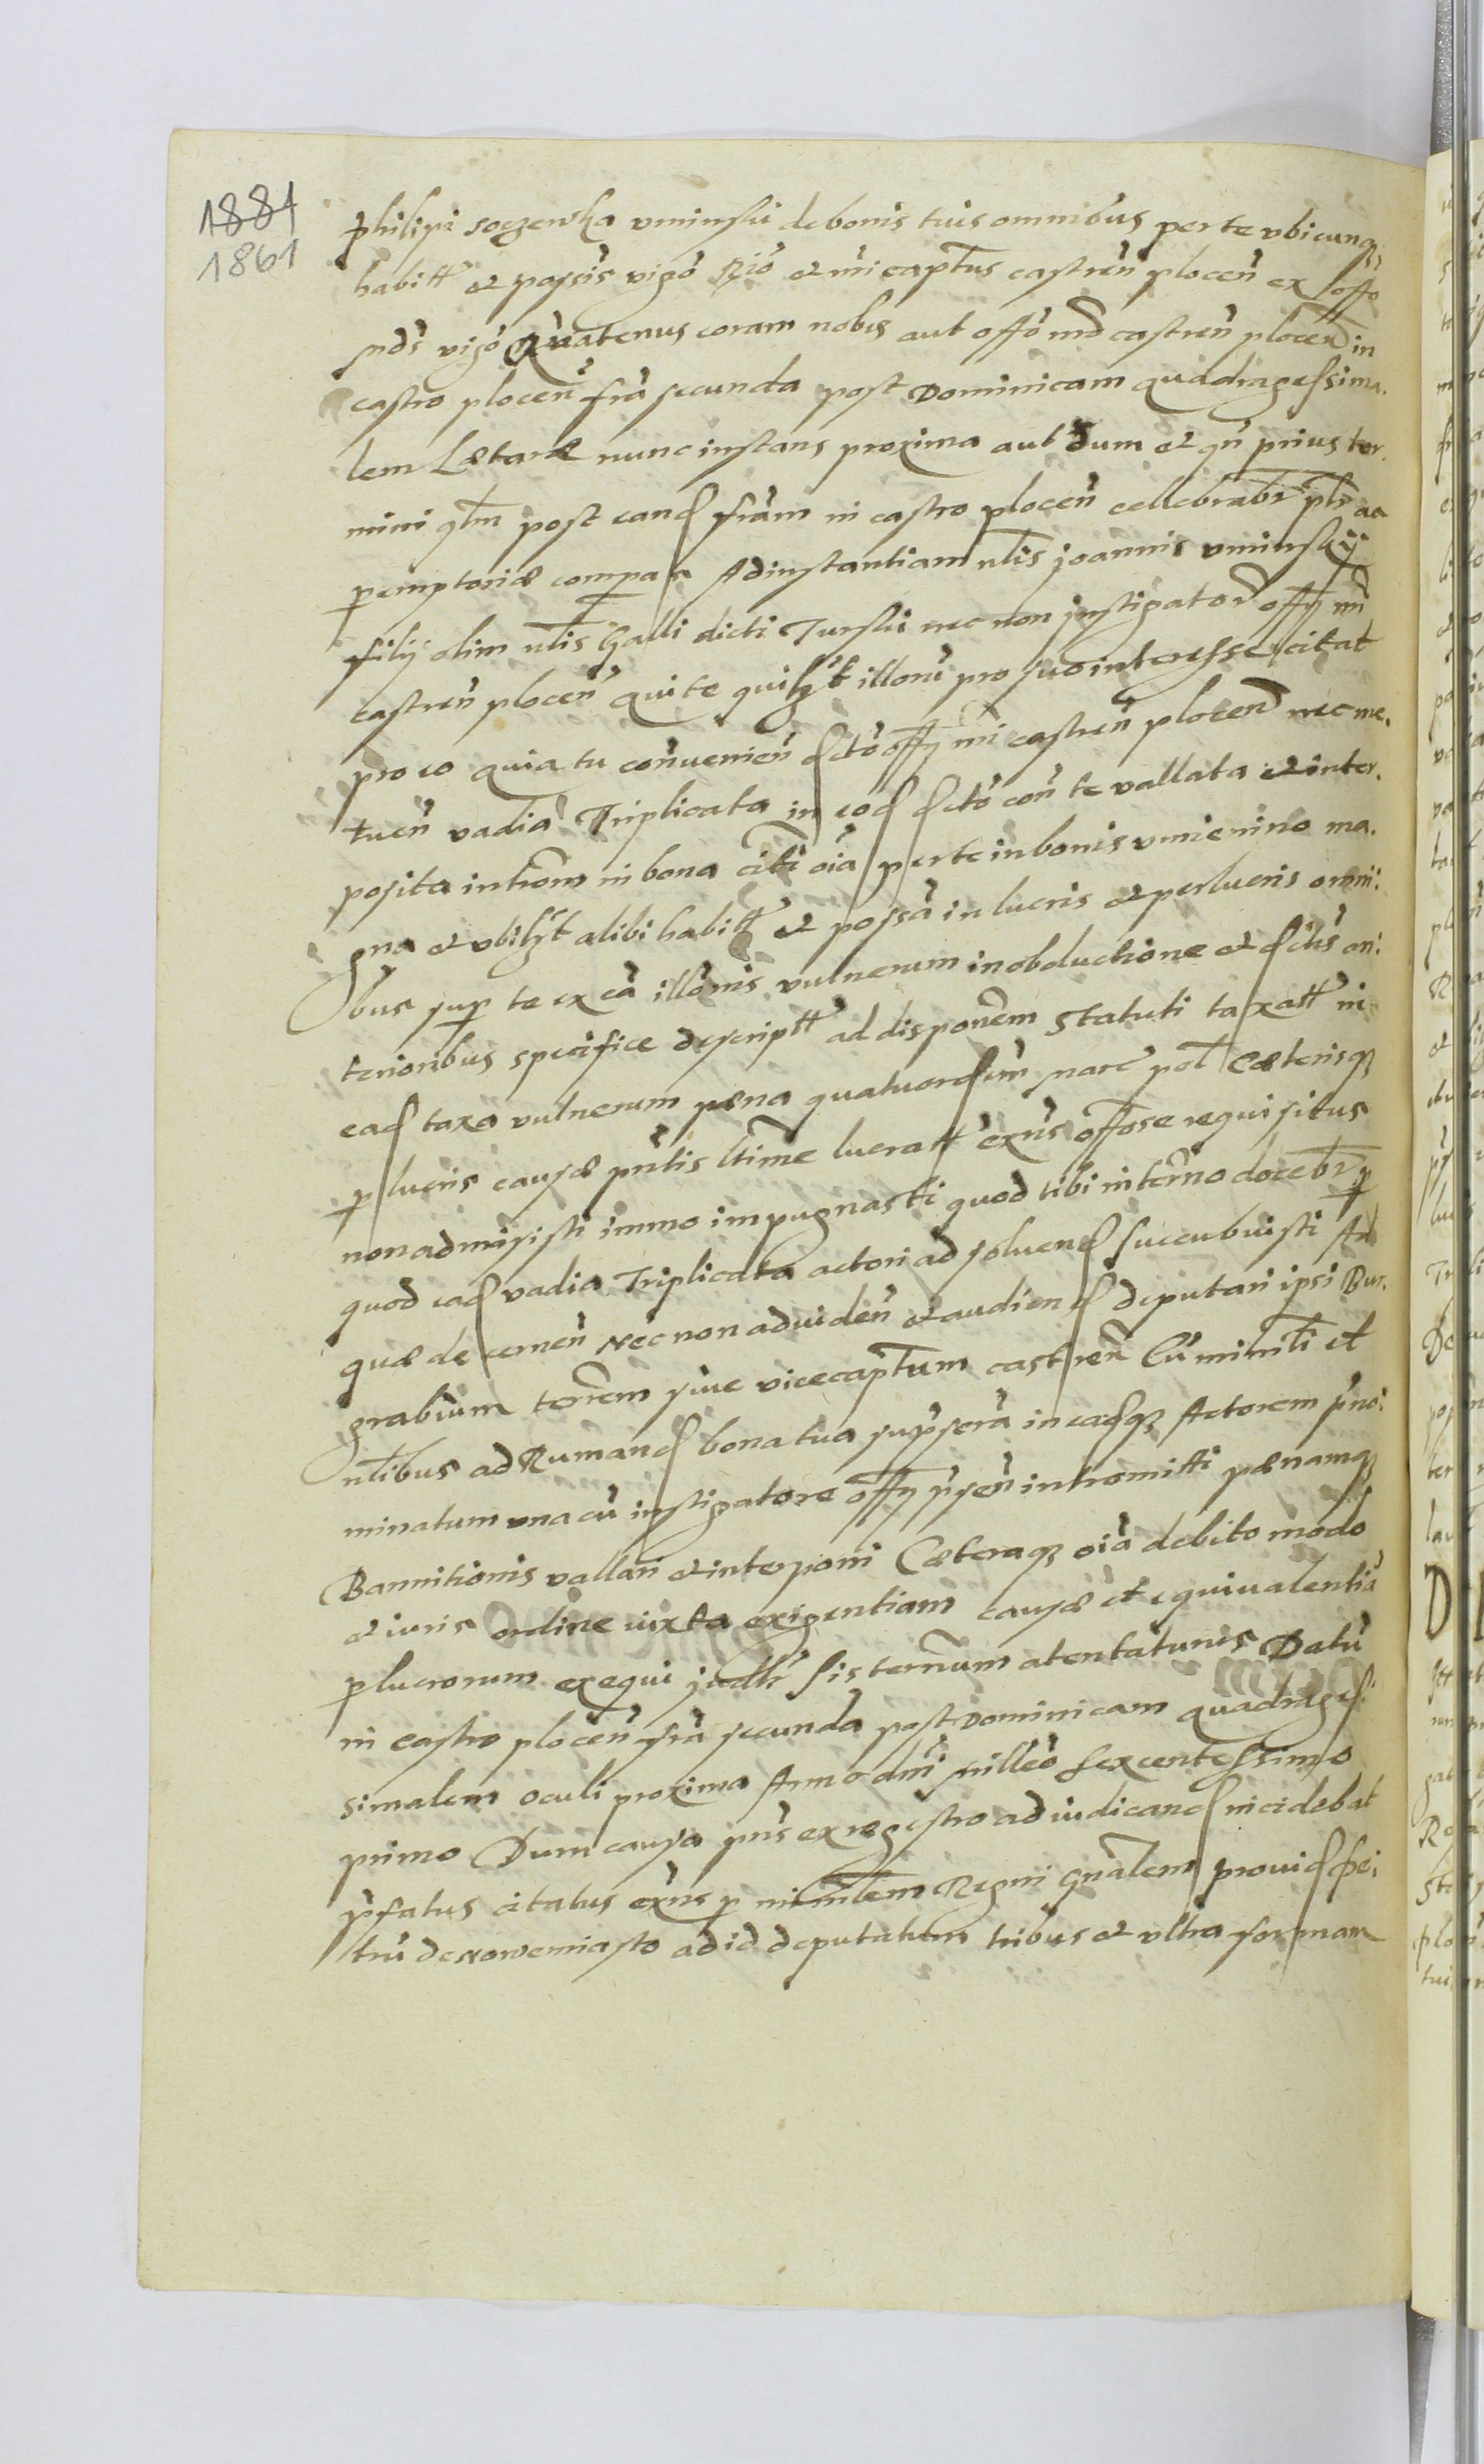 1881
1861
Philipi soczewka vminski de bonis tuis omnibus per te vbicunq;
habitt et possis vigō Rīo et mī captus castreñ ploceñ ex offo
mds vigō Quatenus coram nobis aut offō md castreñ ploceñ in
castro ploceñ fria secunda post Dominicam quadragessima.
lem Lætaræ nunc instans proxima aut dum et qn prius ter.
mini qlm post eand friam in castro ploceñ cellebrabr
peremptoriæ compas Ad instantiam nlis joannis vminskij
filij olim nlis Galli dicti Turski nec non jnstigator offy md
castreñ ploceñ qui te quilzt illorū pro suo interesse citat
pro eo quia tu conuenieñ dctō offy mi castreñ ploceñ nec me.
tueñ vadia Triplicata in eod dctō con te vallata et inter.
posita introm in bona citi oia per te in bonis vmienino ma.
gna et vbilzt alibi habitt et possa in lucris et perlucris omni.
bus sup te ex ca illonis vulnerum in obductione et dctis an.
terioribus specifice descriptt ad disponem Statuti taxatt in
ead taxa vulnerum pæna quatuordcim mare pol Cæterisq;
p lucris causæ pntis ltime lucratt exns offose requisitus
non admisisti immo impugnasti quod tibi in termo docebr p
quod ead vadia Triplicata actori ad soluend succubuisti Ad
quæ decerneñ Nec non ad uideñ et audiend deputari ipsi Bur.
grabium terrem siue vicecaptum castreñ Cū minrli et
nlibus ad Rumand bona tua suprsera in eadq; Actorem pno.
minatum vna cū instigatore offy prseñ intromitti pænamq;
Bannitionis vallari et interponi Cæteraq; oia debito modo
et iuris ordine iuxta exigentiam causæ et equiualentia
p lucrorum exequi judlr Sis ternum atentaturus Datū
in castro ploceñ fria secunda post Dominicam quadrages.
simalem oculi proxima Anno dni milleō sexcentessimo
primo Dum causa pns ex regestro ad iudicand incidebat
pfatus citatus exns p minrlem Regni Gnalem prouid Pe.
trū de Nowemiasto ad id deputatum tribus et vltra formam